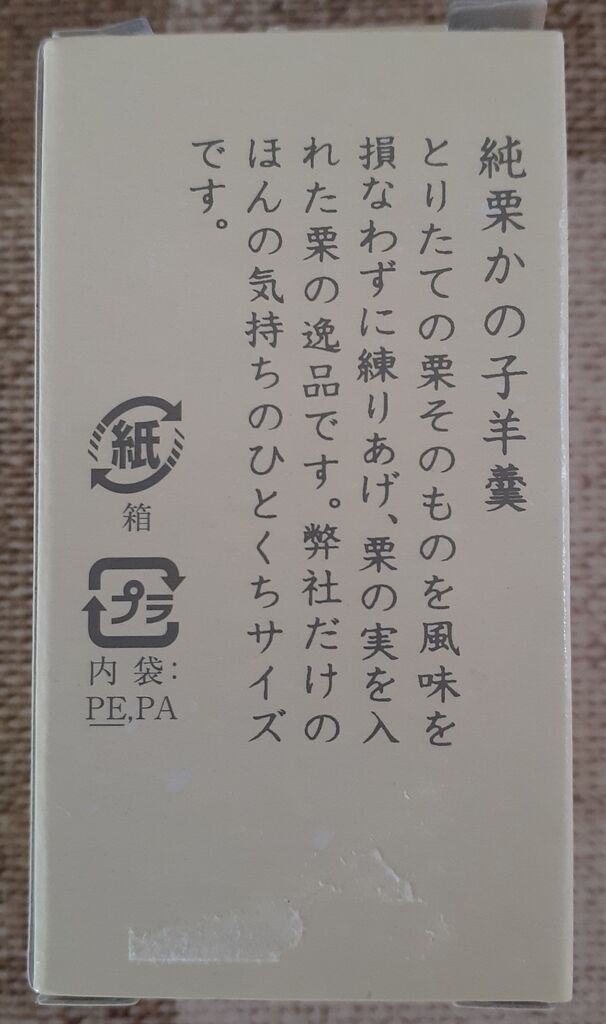 純栗かの子羊羹
とりたての栗そのものを風味を
損なわずに練りあげ、栗の実を入
れた栗の逸品です。弊社だけの
ほんの気持ちのひとくちサイズ
です。
紙
箱
プラ
内 袋:
PE,PA